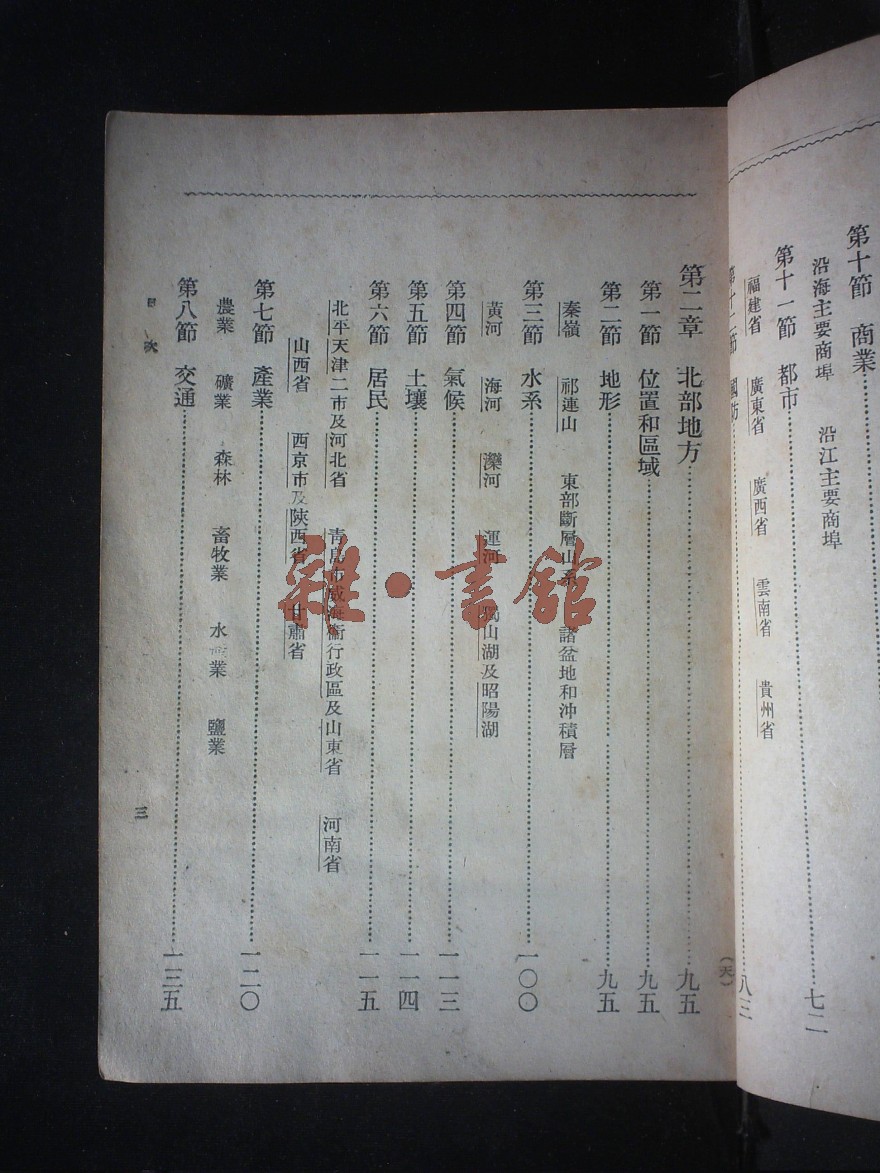 第十節 商業
沿海主要商埠 沿江主要商埠
第十一節 都市 七二
福建省 廣東省 廣西省 雲南省 貴州省
第十二節 國防 八三
第二章 北部地方 九五
第一節 位置和區域 九五
第二節 地形 九五
秦嶺 祁連山 東部斷層山系 諸盆地和沖積層
第三節 水系 一〇〇
黃河 海河 灤河 運河 獨山湖及昭陽湖
第四節 氣候 一一三
第五節 土壤 一一四
第六節 居民 一一五
北平天津二市及河北省 青島市威海衞行政區及山東省 河南省
山西省 西京市及陝西省 甘肅省
第七節 產業 一二〇
農業 礦業 森林 畜牧業 水產業 鹽業
第八節 交通 一三五
目次 三
雜·書館